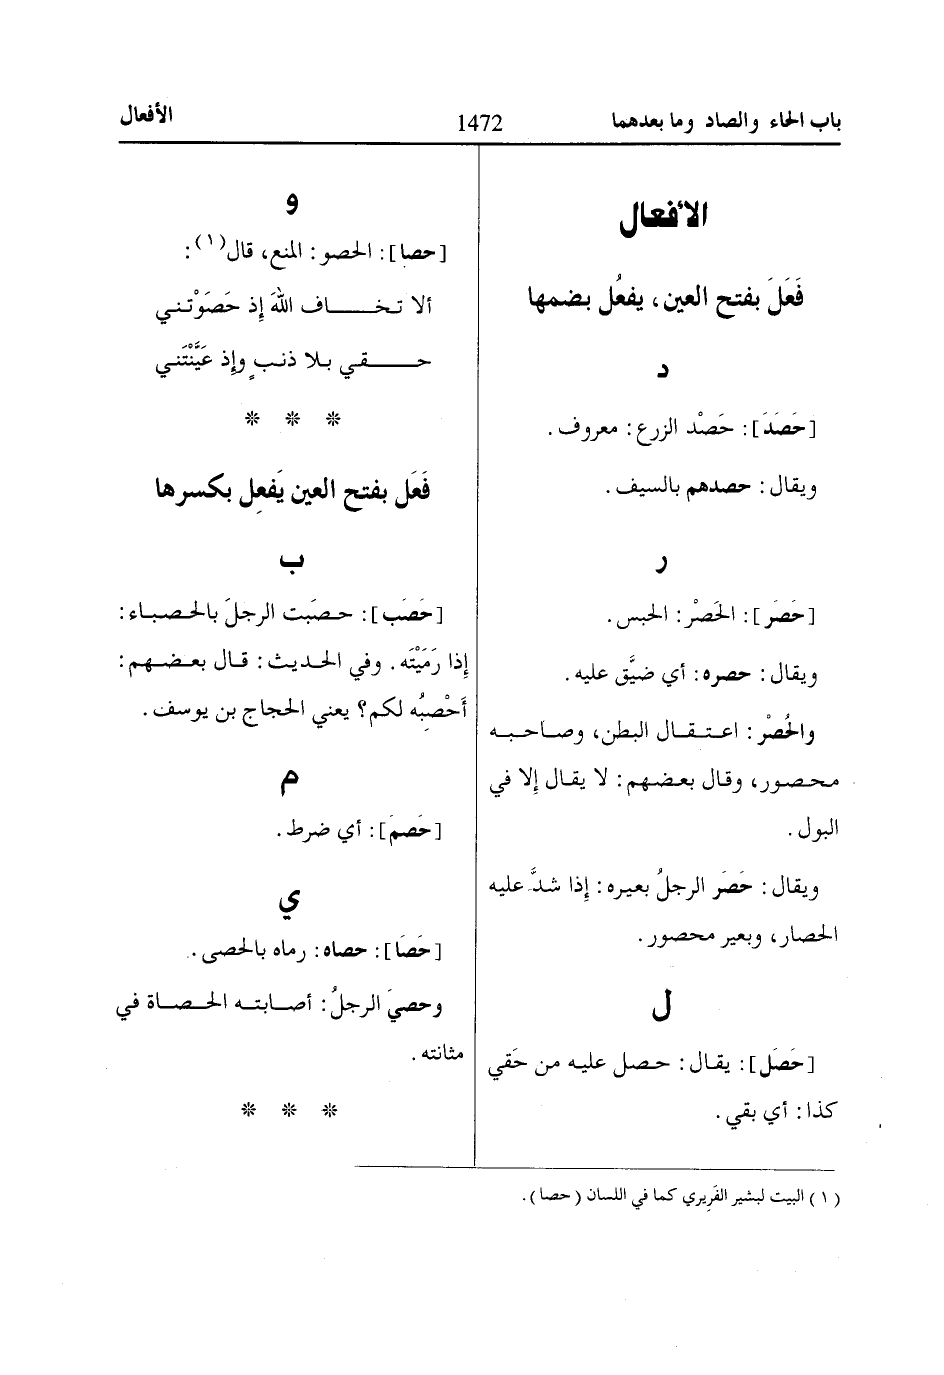 باب الحاء والصاد وما بعدهما
1472
الأفعال
الأفعال
فَعَلَ بفتح العين، يفعُل بضمها
د
[حَصَدَ]: حَصْد الزرع: معروف.
ويقال: حصدهم بالسيف.
ر
[حَصَر]: الحَصْر: الحبس.
ويقال: حصره: أي ضيَّق عليه.
والحُصْر: اعتقال البطن، وصاحبه
محصور، وقال بعضهم: لا يقال إلا في
البول.
ويقال: حَصَر الرجلُ بعيره: إذا شدَّ عليه
الحصار، وبعير محصور.
ل
[حَصَل]: يقال: حصل عليه من حَقي
كذا: أي بقي.
و
[حصا]: الحصو: المنع، قال(١):
ألا تخاف اللهَ إذ حَصَوْتني
حقي بلا ذنبٍ وإذ عَنَّنْتَني
* * *
فَعَل بفتح العين يَفعِل بكسرها
ب
[حَصَب]: حصَبت الرجلَ بالحصباء:
إذا رَمَيْتَه. وفي الحديث: قال بعضهم:
أَحْصِبُه لكم؟ يعني الحجاج بن يوسف.
م
[حَصمَ]: أي ضرط.
ي
[حَصَا]: حصاه: رماه بالحصى.
وحصيَ الرجلُ: أصابته الحصاة في
مثانته.
* * *
(١) البيت لبشير الفَرِيري كما في اللسان (حصا).